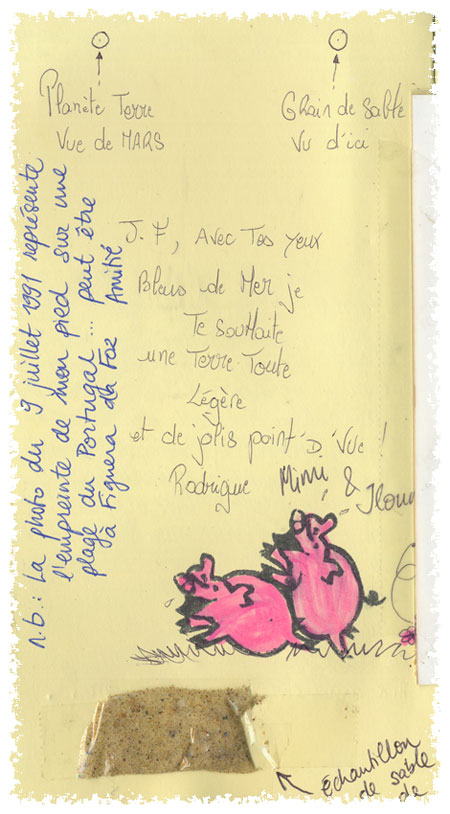 Planète Terre
Vue de MARS
Grain de Sable
Vu d'ici
J. F, Avec Tes yeux
Bleus de Mer je
Te souhaite
une Terre Toute
Légère
et de jolis point D Vue !
Rodrigue
Mimi &
n.b.: La photo du 9 juillet 1991 représente
l'empreinte de mon pied sur une
plage du Portugal ... peut être
à Figuera da Foz Amitié
échantillon
de sable
de